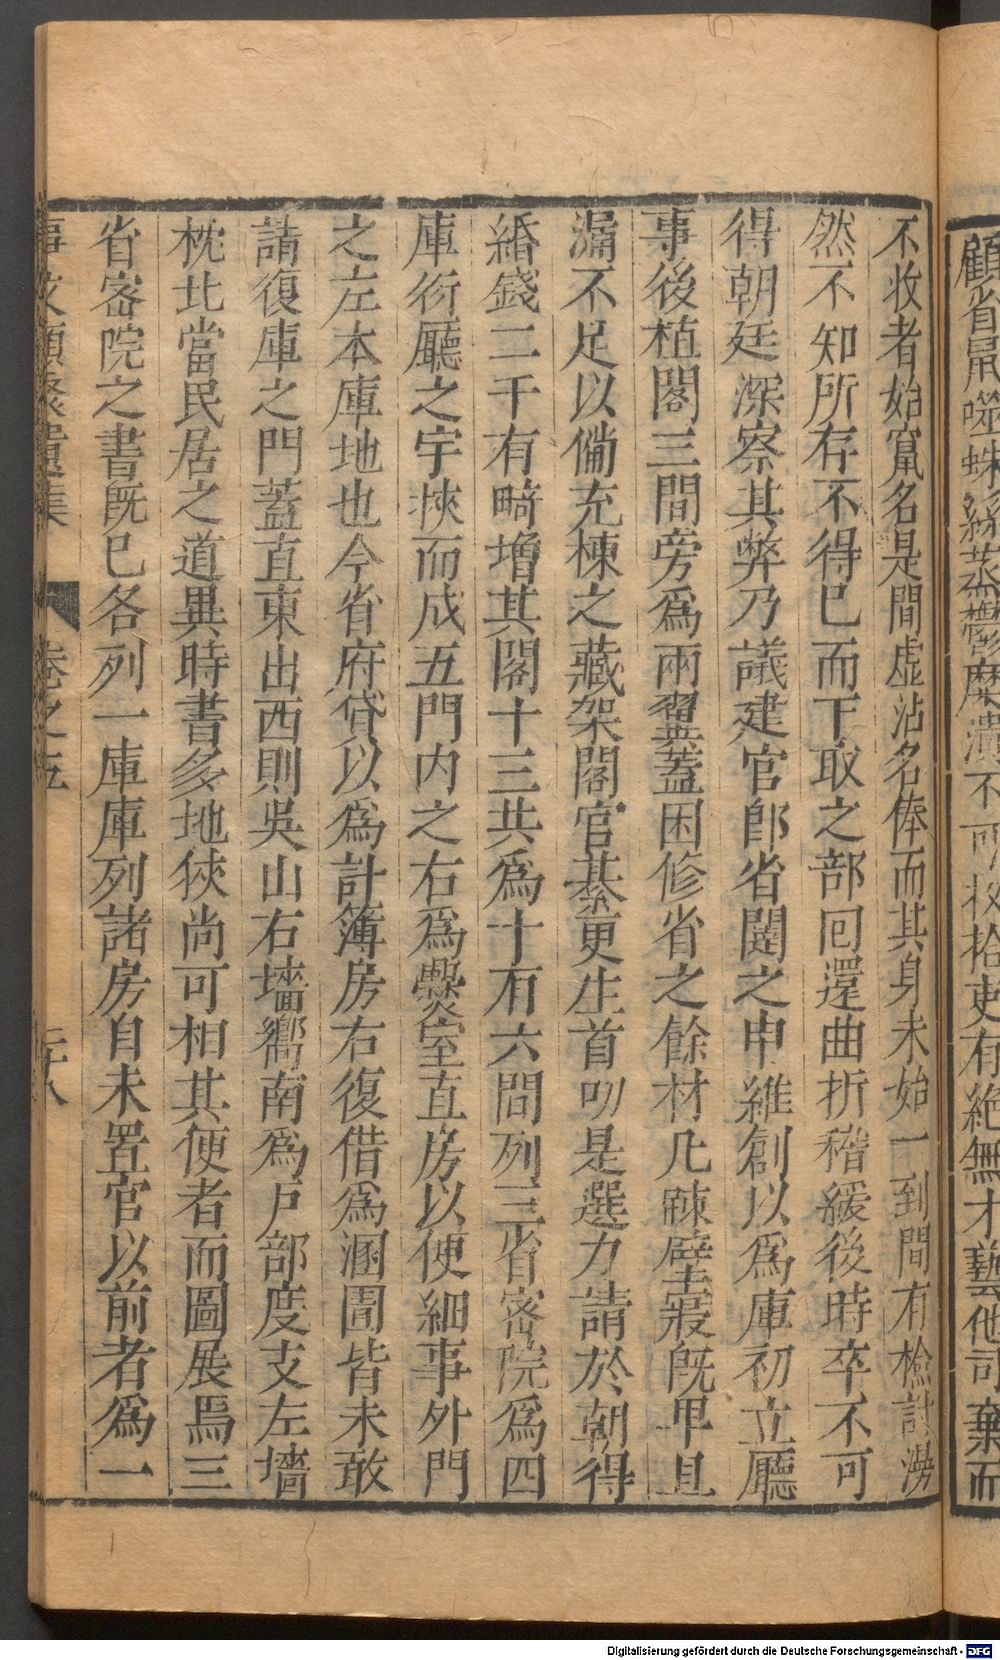 顧省鼠囓蛛絲蒸鬱糜潰不可収拾吏有絶無才藝他司棄而
不收者始竄名是間虚沾名俸而其身未始一到間有檢討漭
然不知所存不得已而下取之部回還曲折稽緩後時卒不可
得朝廷深察其弊乃議建官郎省闥之申維創以爲庫初立廳
事後植閣三間旁爲兩翼蓋因修省之餘材凢疎壁寢旣卑且
漏不足以備充棟之藏架閣官綦更生首叨是選力請於朝得
緡錢二千有畸增其閣十三共爲十有六間列三省密院爲四
庫衍廳之宇挾而成五門内之右爲爨室直房以便細事外門
之左本庫地也今省府貸以爲計簿房右復借爲溷圊皆未敢
請復庫之門蓋直東出西則吳山右墻嚮南爲户部度支左墻
枕北當民居之道異時書多地狹尚可相其便者而圖展焉三
省密院之書旣巳各列一庫庫列諸房自未置官以前者爲一
事文類聚遺集 卷之五 二十八
Digitalisierung gefördert durch die Deutsche Forschungsgemeinschaft - DFG